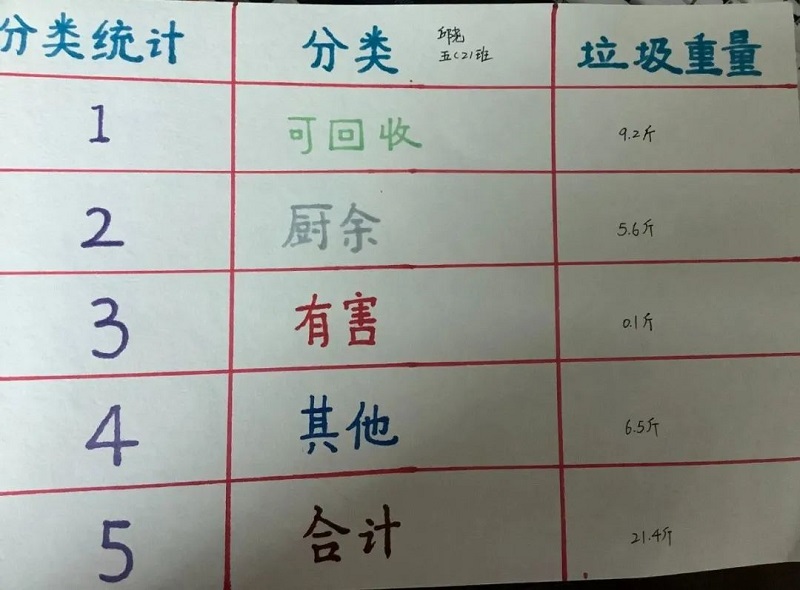 分类统计 分类 垃圾重量
五(2)班
1 可回收 9.2斤
2 厨余 5.6斤
3 有害 0.1斤
4 其他 6.5斤
5 合计 21.4斤